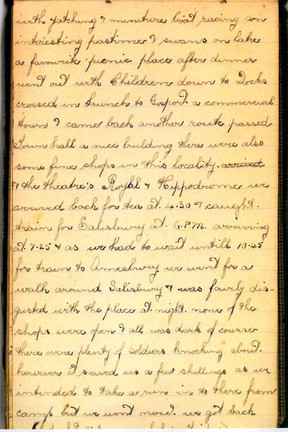 with yatching & minature boat racing an
intriesting pastimes & swans on lake
a favourite picnic place after dinner
went out with Children down to Docks
crossed in launch to Gosford a commercial
town & came back another route passed
Town hall a nice building there were also
some fine shops in this locality. arrived
& the theatre's Royal & Hippodrome we
arrived back for tea at 4.30 & caught
train for Salisbury at 6.P.M. arriving
at 7.25 & as we had to wait untill 10.45
for train to Amesbury we went for a
walk around Salisbury & was fairly dis-
gusted with the place at night. none of the
shops were open & all was dark of course
there were plenty of soldiers knocking about.
however it saved us a few shillings as we
intended to take a run in to there from
camp but we wont now. we got back